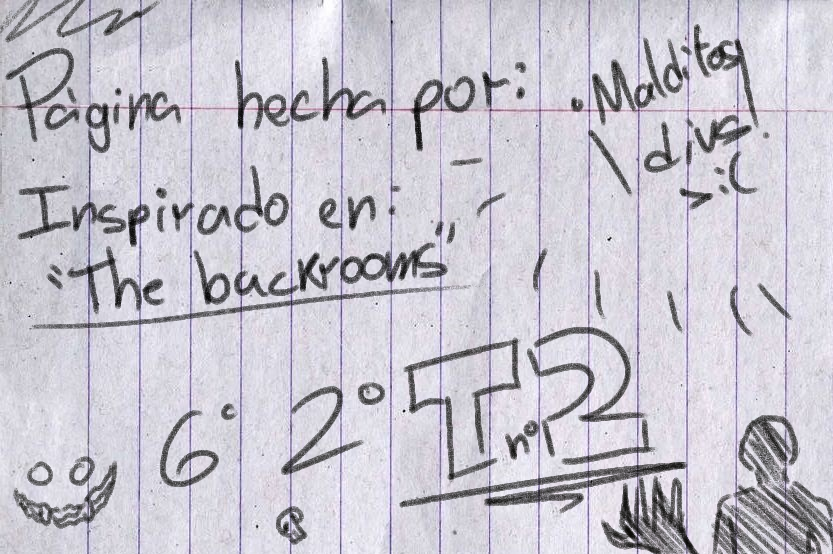 Página hecha por:
.Malditos
divs!
>:(
Inspirado en:
"The backrooms"
6° 2° T nº2